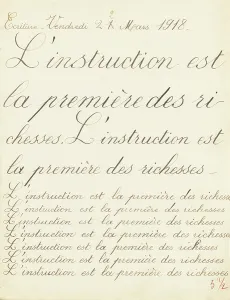 Ecriture Vendredi 22 Mars 1918.
L'instruction est
la première des ri-
chesses. L'instruction est
la première des richesses
L'instruction est la première des richesses
L'instruction est la première des richesses
L'instruction est la première des richesses
L'instruction est la première des richesses
L'instruction est la première des richesses
L'instruction est la première des richesses
L'instruction est la première des richesses
5 1/2